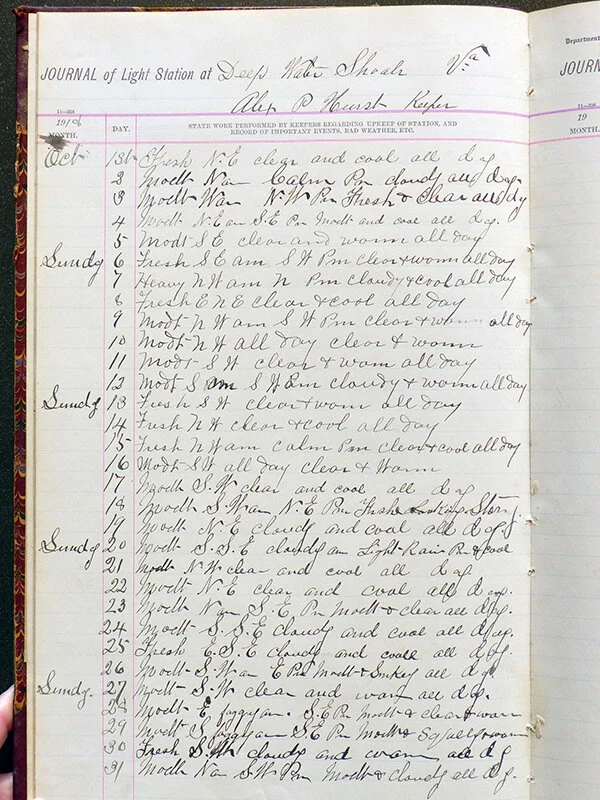 JOURNAL of Light Station at Deep Water Shoals Va
Alex P Hurst Keeper
11—358
1918
MONTH. DAY. STATE WORK PERFORMED BY KEEPERS REGARDING UPKEEP OF STATION, AND
RECORD OF IMPORTANT EVENTS, BAD WEATHER, ETC.
Oct 1st Fresh N. E clear and cool all day
2 Modt N am Calm Pm cloudy all day
3 Modt W am N. W Pm Fresh & clear all dy
4 Modt N. E am S. E Pm Modt and cool all day.
5 Modt S E clear and warm all day
Sundy 6 Fresh S E am S W Pm clear & warm all day
7 Heavy N W am N Pm cloudy & cool all day
8 Fresh E N E clear & cool all day
9 Modt N W am S W Pm clear & warm all day
10 Modt N W all day clear & warm
11 Modt S W clear & warm all day
12 Modt S am S W Pm cloudy & warm all day
Sundy 13 Fresh S W clear & warm all day
14 Fresh N W clear & cool all day
15 Fresh N W am calm Pm clear & cool all day
16 Modt S W all day clear & warm
17 Modt S. W clear and cool all day
18 Modt S. W am N. E Pm Fresh
19 Modt N. E cloudy and cool all day.
Sundy 20 Modt S. S. E cloudy am Light Rain Pm & cool
21 Modt N. W clear and cool all day
22 Modt N. E clear and cool all day.
23 Modt N am S. E. Pm Modt & clear all day.
24 Modt S. S. E cloudy and cool all day.
25 Fresh E. S. E cloudy and cool all day.
26 Modt S. W am E Pm Modt & Smkey all day
Sundy. 27 Modt S. W clear and warm all day.
28 Modt E foggy am. S. E Pm Modt & clear & warm
29 Modt S foggy am S E Pm Modt & Squally & warm
30 Fresh S. W cloudy and warm all day
31 Modt N am S W Pm Modt & cloudy all day.
Department
JOURN
11—358
19
MONTH.